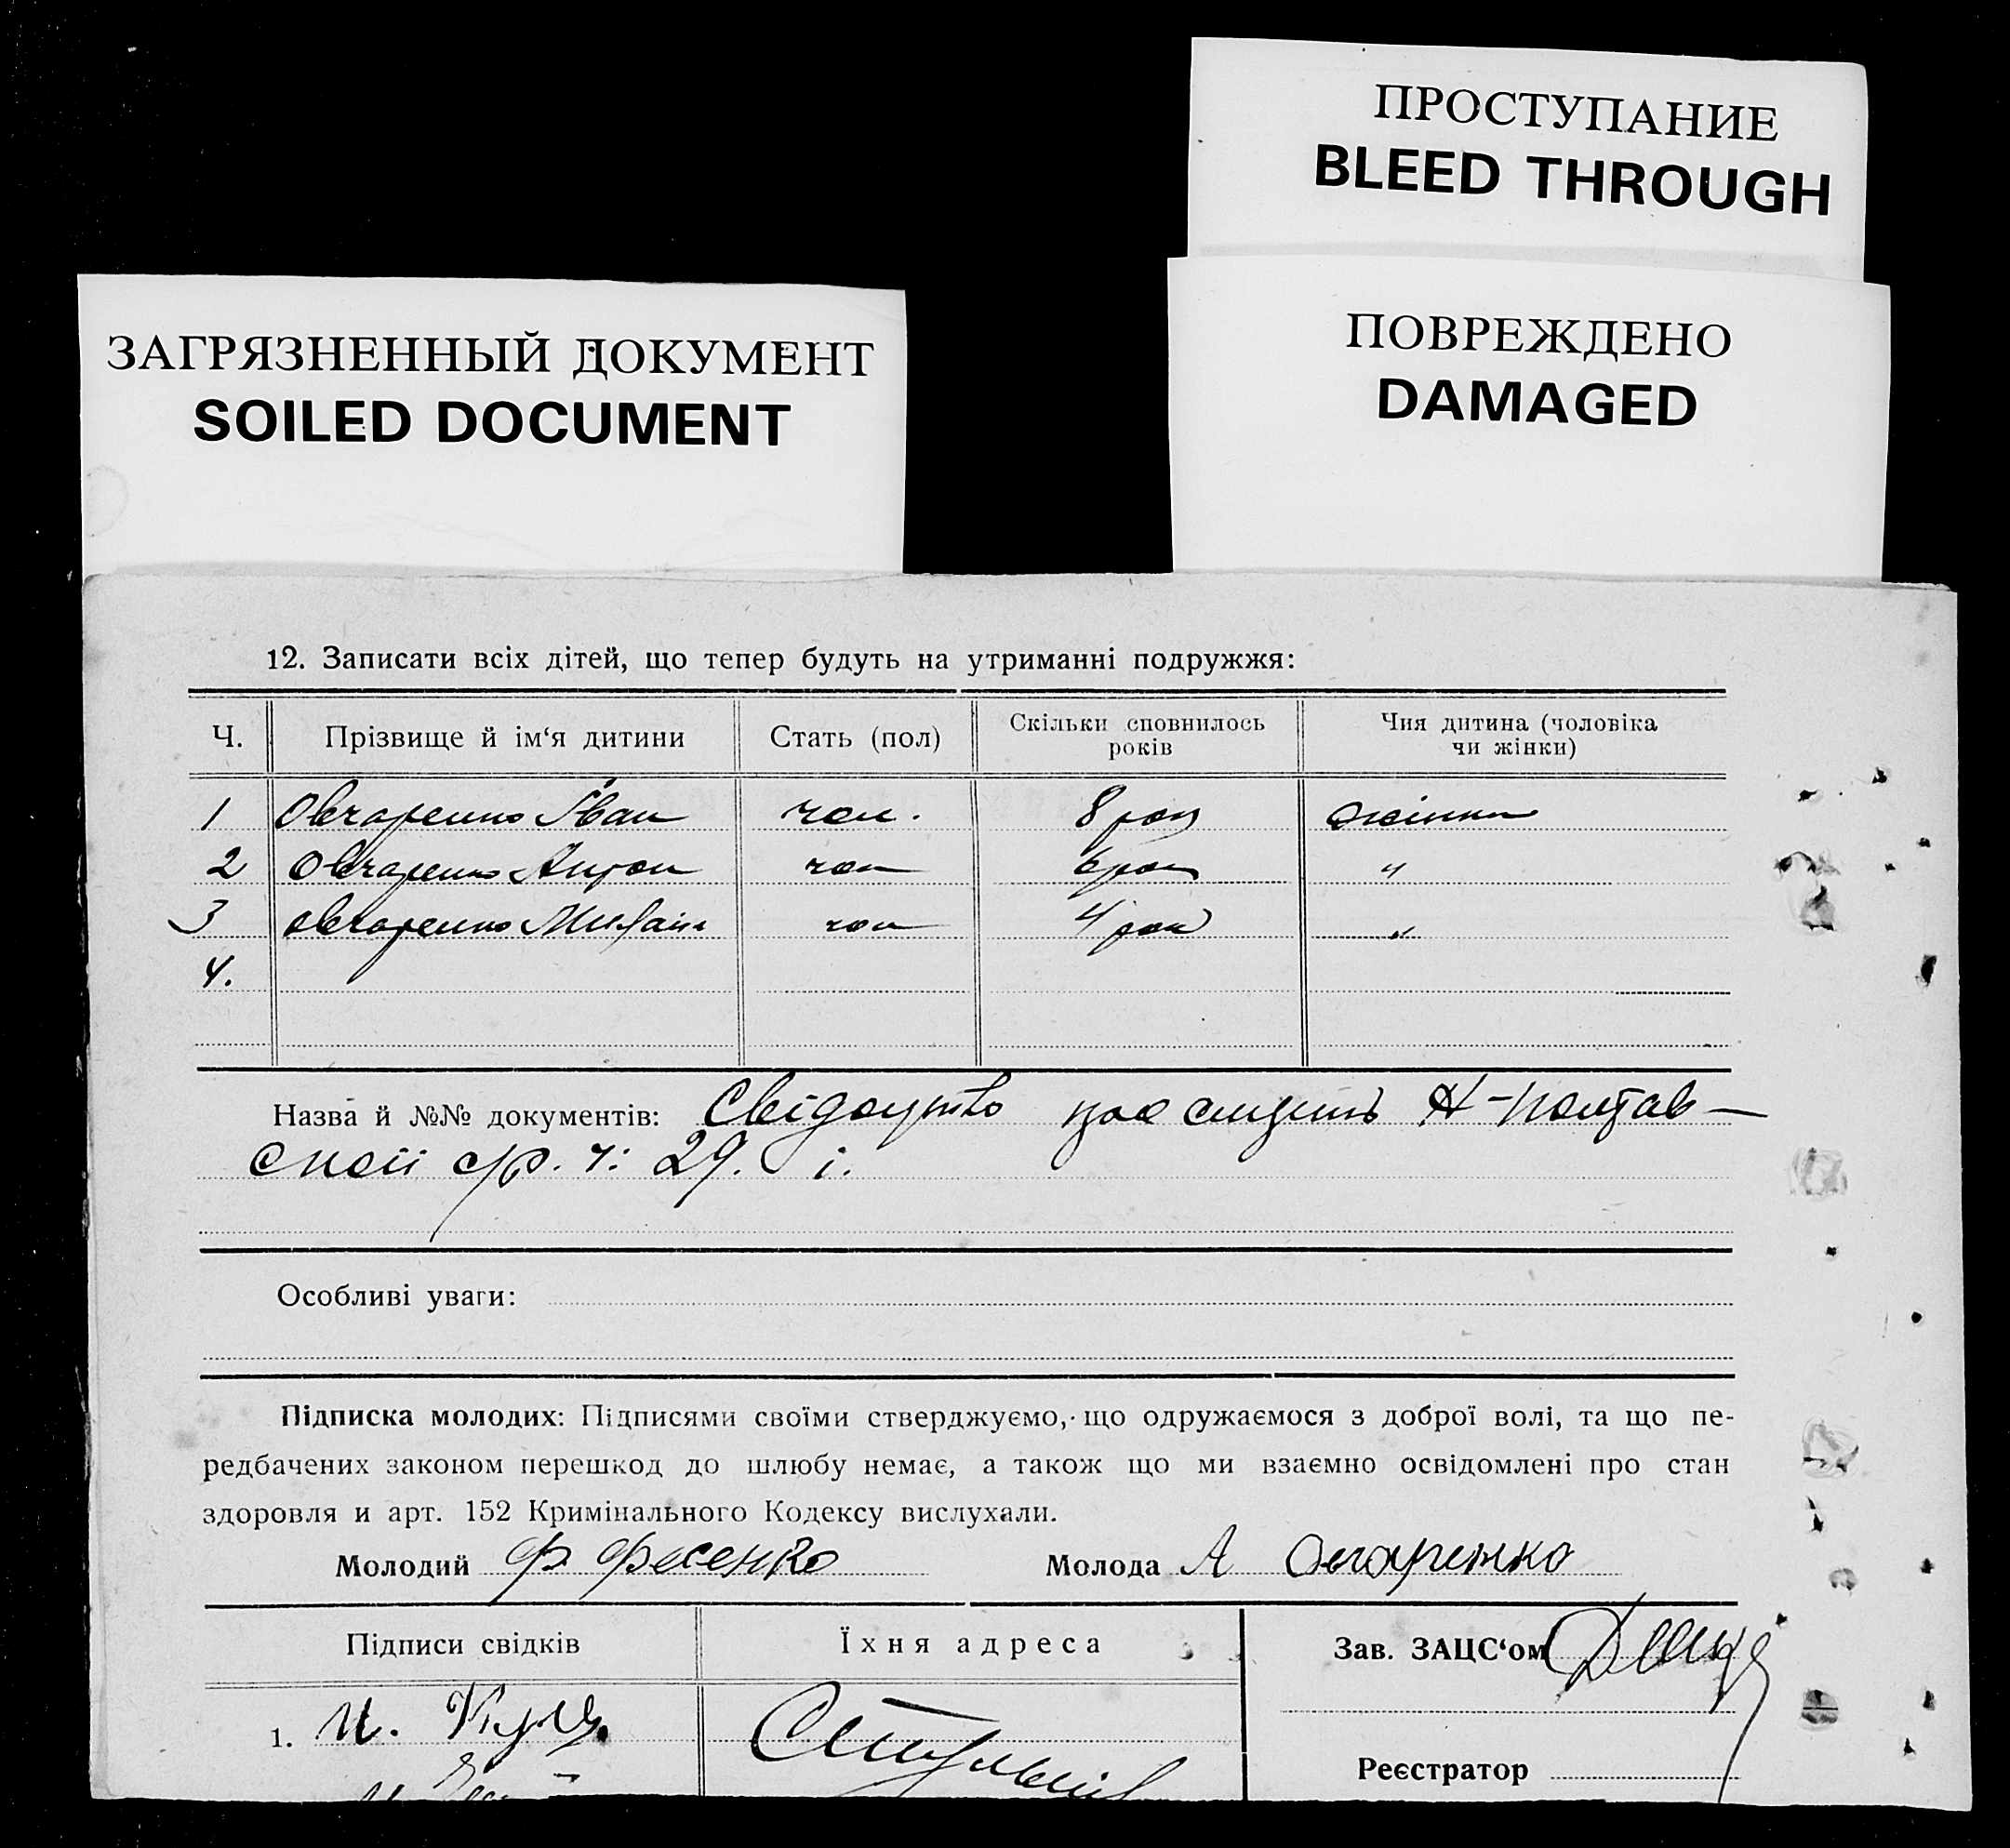 ПРОСТУПАНИЕ
BLEED THROUGH
ЗАГРЯЗНЕННЫЙ ДОКУМЕНТ
SOILED DOCUMENT
ПОВРЕЖДЕНО
DAMAGED
12. Записати всіх дітей, що тепер будуть на утриманні подружжя:
Ч. Прізвище й ім‘я дитини Стать (пол) Скільки сповнилось років Чия дитина (чоловіка чи жінки)
1 Овчаренко Іван чол. 8 рок жінки
2 Овчаренко Антон чол 6 рок "
3 Овчаренко Михайл чол 4 рок "
4.
Назва й №№ документів: Свідоцтво про смерть Н-Полтав-
ской с/р. ч: 29. і.
Особливі уваги:
Підписка молодих: Підписями своїми стверджуємо, що одружаємося з доброї волі, та що пе-
редбачених законом перешкод до шлюбу немає, а також що ми взаємно освідомлені про стан
здоровля и арт. 152 Кримінального Кодексу вислухали.
Молодий Ф Фесенко Молода А Овчаренко
Підписи свідків Їхня адреса Зав. ЗАЦС‘ом
1. И.
Реєстратор